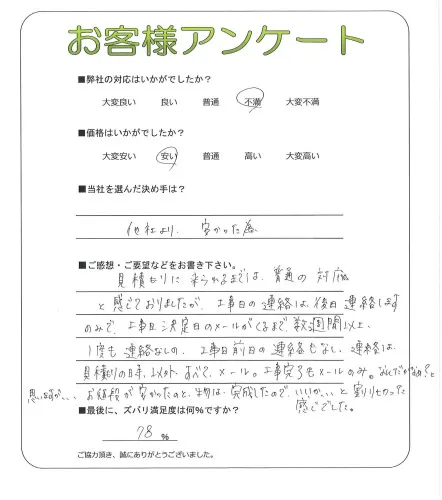 お客様アンケート
■弊社の対応はいかがでしたか？
大変良い 良い 普通 不満 大変不満
■価格はいかがでしたか？
大変安い 安い 普通 高い 大変高い
■当社を選んだ決め手は？
他社より、安かった為
■ご感想・ご要望などをお書き下さい。
見積もりに来られるまでは、普通の対応
と感じておりましたが、工事日の連絡は、後日連絡します
のみで、工事日決定日のメールがくるまで、数週間以上、
1度も連絡なしの、工事日前日の連絡もなし、連絡は、
見積りの日時、以外、すべて、メール。工事完了もメールのみ。なんでかなぁ？と
思いますが、、、お値段が安かったのと、物は、完成したので、いいか、、と割り切った
感じでした。
■最後に、ズバリ満足度は何％ですか？
78 %
ご協力頂き、誠にありがとうございました。